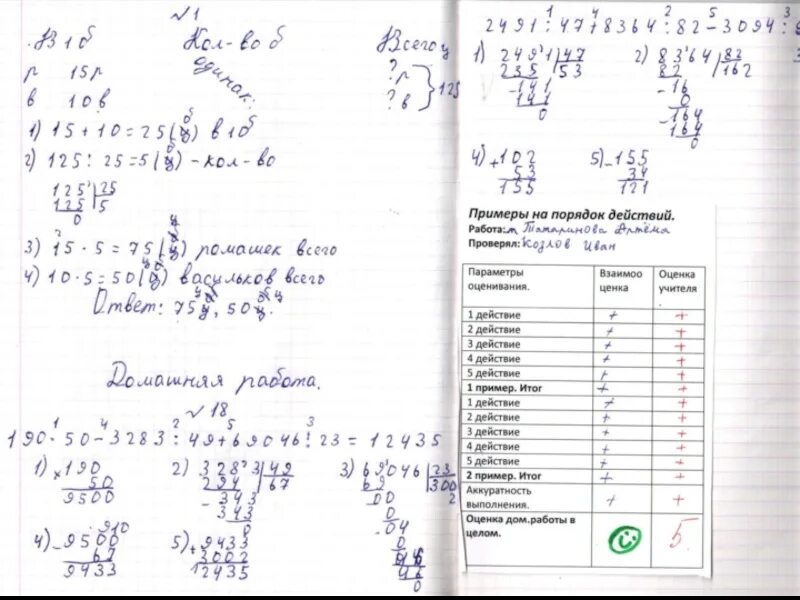 №1
В 1 б Кол-во б Всего ц
р 15р одинак. ?р
в 10в ?в } 125
1) 15 + 10 = 25 (ц) в 1 б
2) 125 : 25 = 5 (б) - кол-во
125 25
125 5
0
3) 15 · 5 = 75 (ц) ромашек всего
4) 10 · 5 = 50 (ц) васильков всего
Ответ: 75ц, 50ц.
Домашняя работа.
№18
1 4 2 5 3
190·50-3283:49+69046:23=12435
1) ×190
50
9500
2) 3283 49
294 67
- 343
343
0
3) 69046 23
69 3002
00
0
- 04
0
46
46
0
4) - 9500
67
9433
5) + 9433
3002
12435
1 4 2 5 3
2491:47+8364:82-3094:9
1) 2491 47
235 53
- 141
141
0
2) 8364 82
82 102
- 16
0
- 164
164
0
4) + 102
53
155
5) - 155
34
121
Примеры на порядок действий.
Работа: Татаринова Артёма
Проверял: Козлов Иван
Параметры оценивания. Взаимоо ценка Оценка учителя.
1 действие + +
2 действие + +
3 действие + +
4 действие + +
5 действие + +
1 пример. Итог + +
1 действие + +
2 действие + +
3 действие + +
4 действие + +
5 действие + +
2 пример. Итог + +
Аккуратность выполнения. + +
Оценка дом.работы в целом. 5